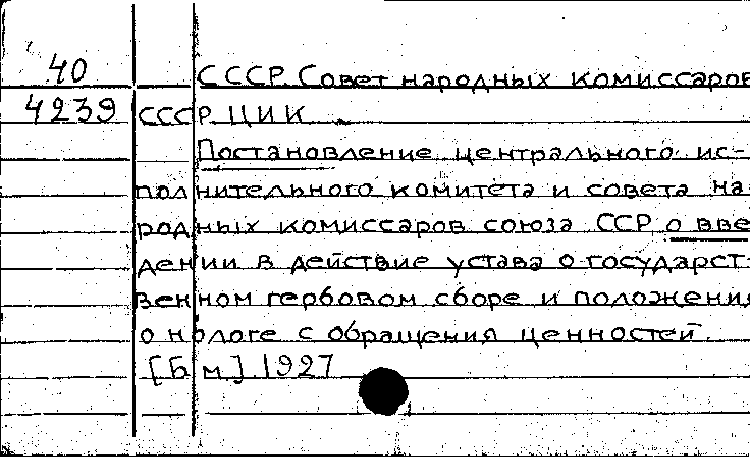 40 СССР. Совет народных комиссаров
4239 СССР. ЦИК
Постановление центрального ис-
полнительного комитета и совета на-
родных комиссаров союза ССР о вве
дении в действие устава о государст-
венном гербовом сборе и положения
о налоге с обращения ценностей.
[Б м]. 1927